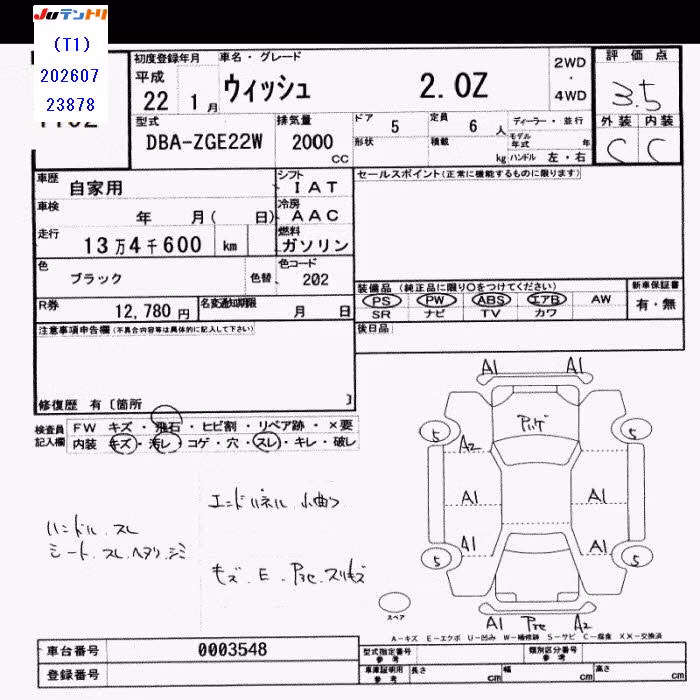 JUテントリ
(T1)
202607
23878
初度登録年月
平成
22 1月
車名・グレード
ウィッシュ 2.0Z
2WD
・
4WD
評価点
3.5
外装 内装
C C
型式
DBA-ZGE22W
排気量
2000
CC
ドア
5
定員
6 人
形状
積載
kg
ディーラー・並行
モデル年式 年
ハンドル 左・右
車歴
自家用
シフト
IAT
車検
年 月( 日)
冷房
AAC
走行
13万4千600 km
燃料
ガソリン
色
ブラック
色替
色コード
202
R券
12,780円
名変通知期限
月 日
セールスポイント(正常に機能するものに限ります)
装備品(純正品に限り○をつけてください)
PS PW ABS エアB AW
SR ナビ TV カワ
新車保証書
有・無
後日品
注意事項申告欄(不具合内容等は具体的に記入して下さい)
修復歴 有〔箇所 〕
検査員
記入欄
FW キズ・飛石・ヒビ割・リペア跡・×要
内装 キズ・汚レ・コゲ・穴・スレ・キレ・破レ
ハンドル スレ
シート、スレ、ヘタリ、シミ
エンドパネル 小曲り
キズ、E、Pテヒ、スリキズ
A1 A1
5 5
A2
A1 A1
A1 A1
5 5
A1 A2
スペア
A-キズ E-エクボ U-凹み W-補修跡 S-サビ C-腐食 XX-交換済
車台番号
0003548
登録番号
型式指定番号
参考
類別区分番号
参考
車庫証明用
参考
長さ cm
幅 cm
高さ cm